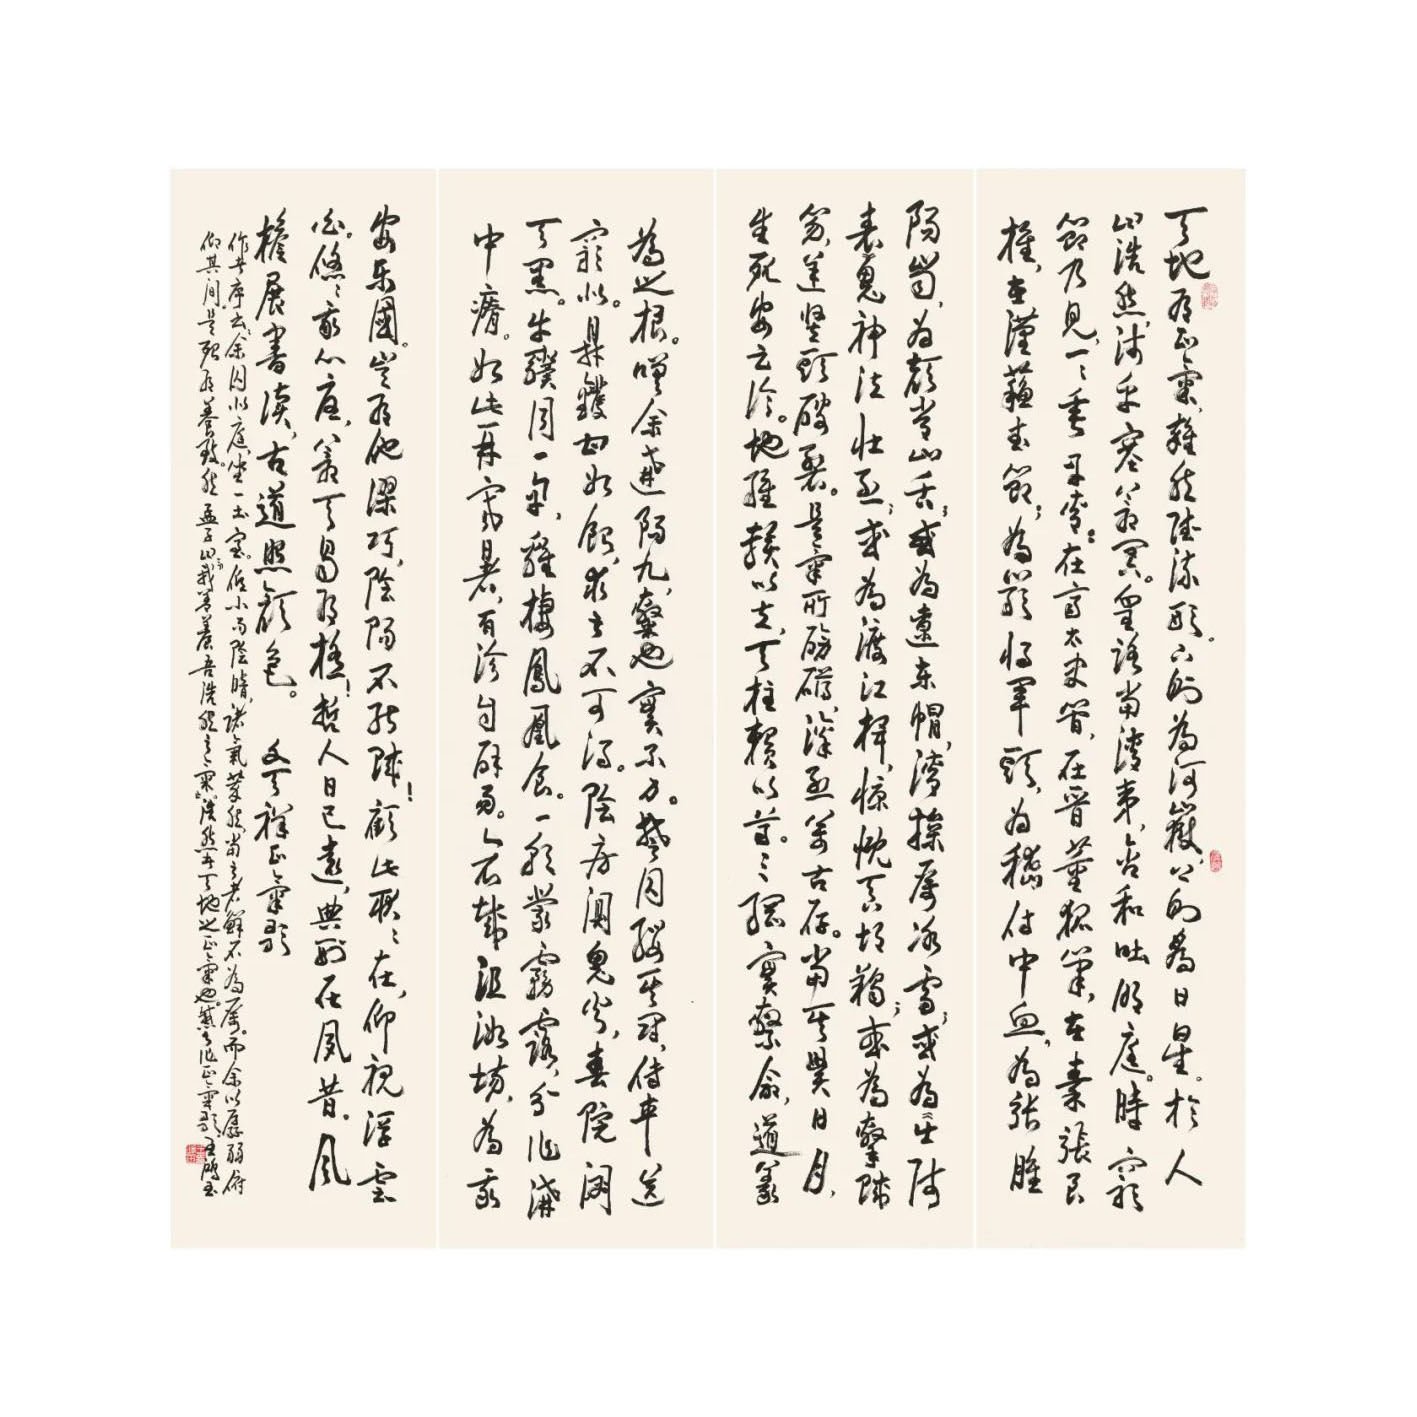 天地有正氣,雜然賦流形。下則為河嶽,上則為日星。於人
曰浩然,沛乎塞蒼冥。皇路當清夷,含和吐明庭。時窮
節乃見,一一垂丹青:在齊太史簡,在晉董狐筆,在秦張良
椎,在漢蘇武節;為嚴將軍頭,為嵇侍中血,為張睢
陽齒,為顏常山舌;或為遼東帽,清操厲冰雪;或為出師
表,鬼神泣壯烈;或為渡江楫,慷慨吞胡羯;或為擊賊
笏,逆豎頭破裂。是氣所磅礴,凜烈萬古存。當其貫日月,
生死安足論。地維賴以立,天柱賴以尊。三綱實繫命,道義
為之根。嗟余遘陽九,隸也實不力。楚囚纓其冠,傳車送
窮北。鼎鑊甘如飴,求之不可得。陰房闃鬼火,春院閟
天黑。牛驥同一皂,雞棲鳳凰食。一朝蒙霧露,分作溝
中瘠。如此再寒暑,百沴自辟易。哀哉沮洳場,為我
安乐國。豈有他繆巧,陰陽不能賊!顧此耿耿在,仰視浮雲
白。悠悠我心悲,蒼天曷有極!哲人日已遠,典刑在夙昔。風
檐展書讀,古道照顏色。 文天祥正氣歌
作者序云,余囚北庭,坐一土室。低小而陰暗,諸氣萃然,當之者鮮不為厲。而余以孱弱俯
仰其間,是殆有養致然。孟子曰,我善養吾浩然之氣,浩然者天地之正氣也,作正氣歌。